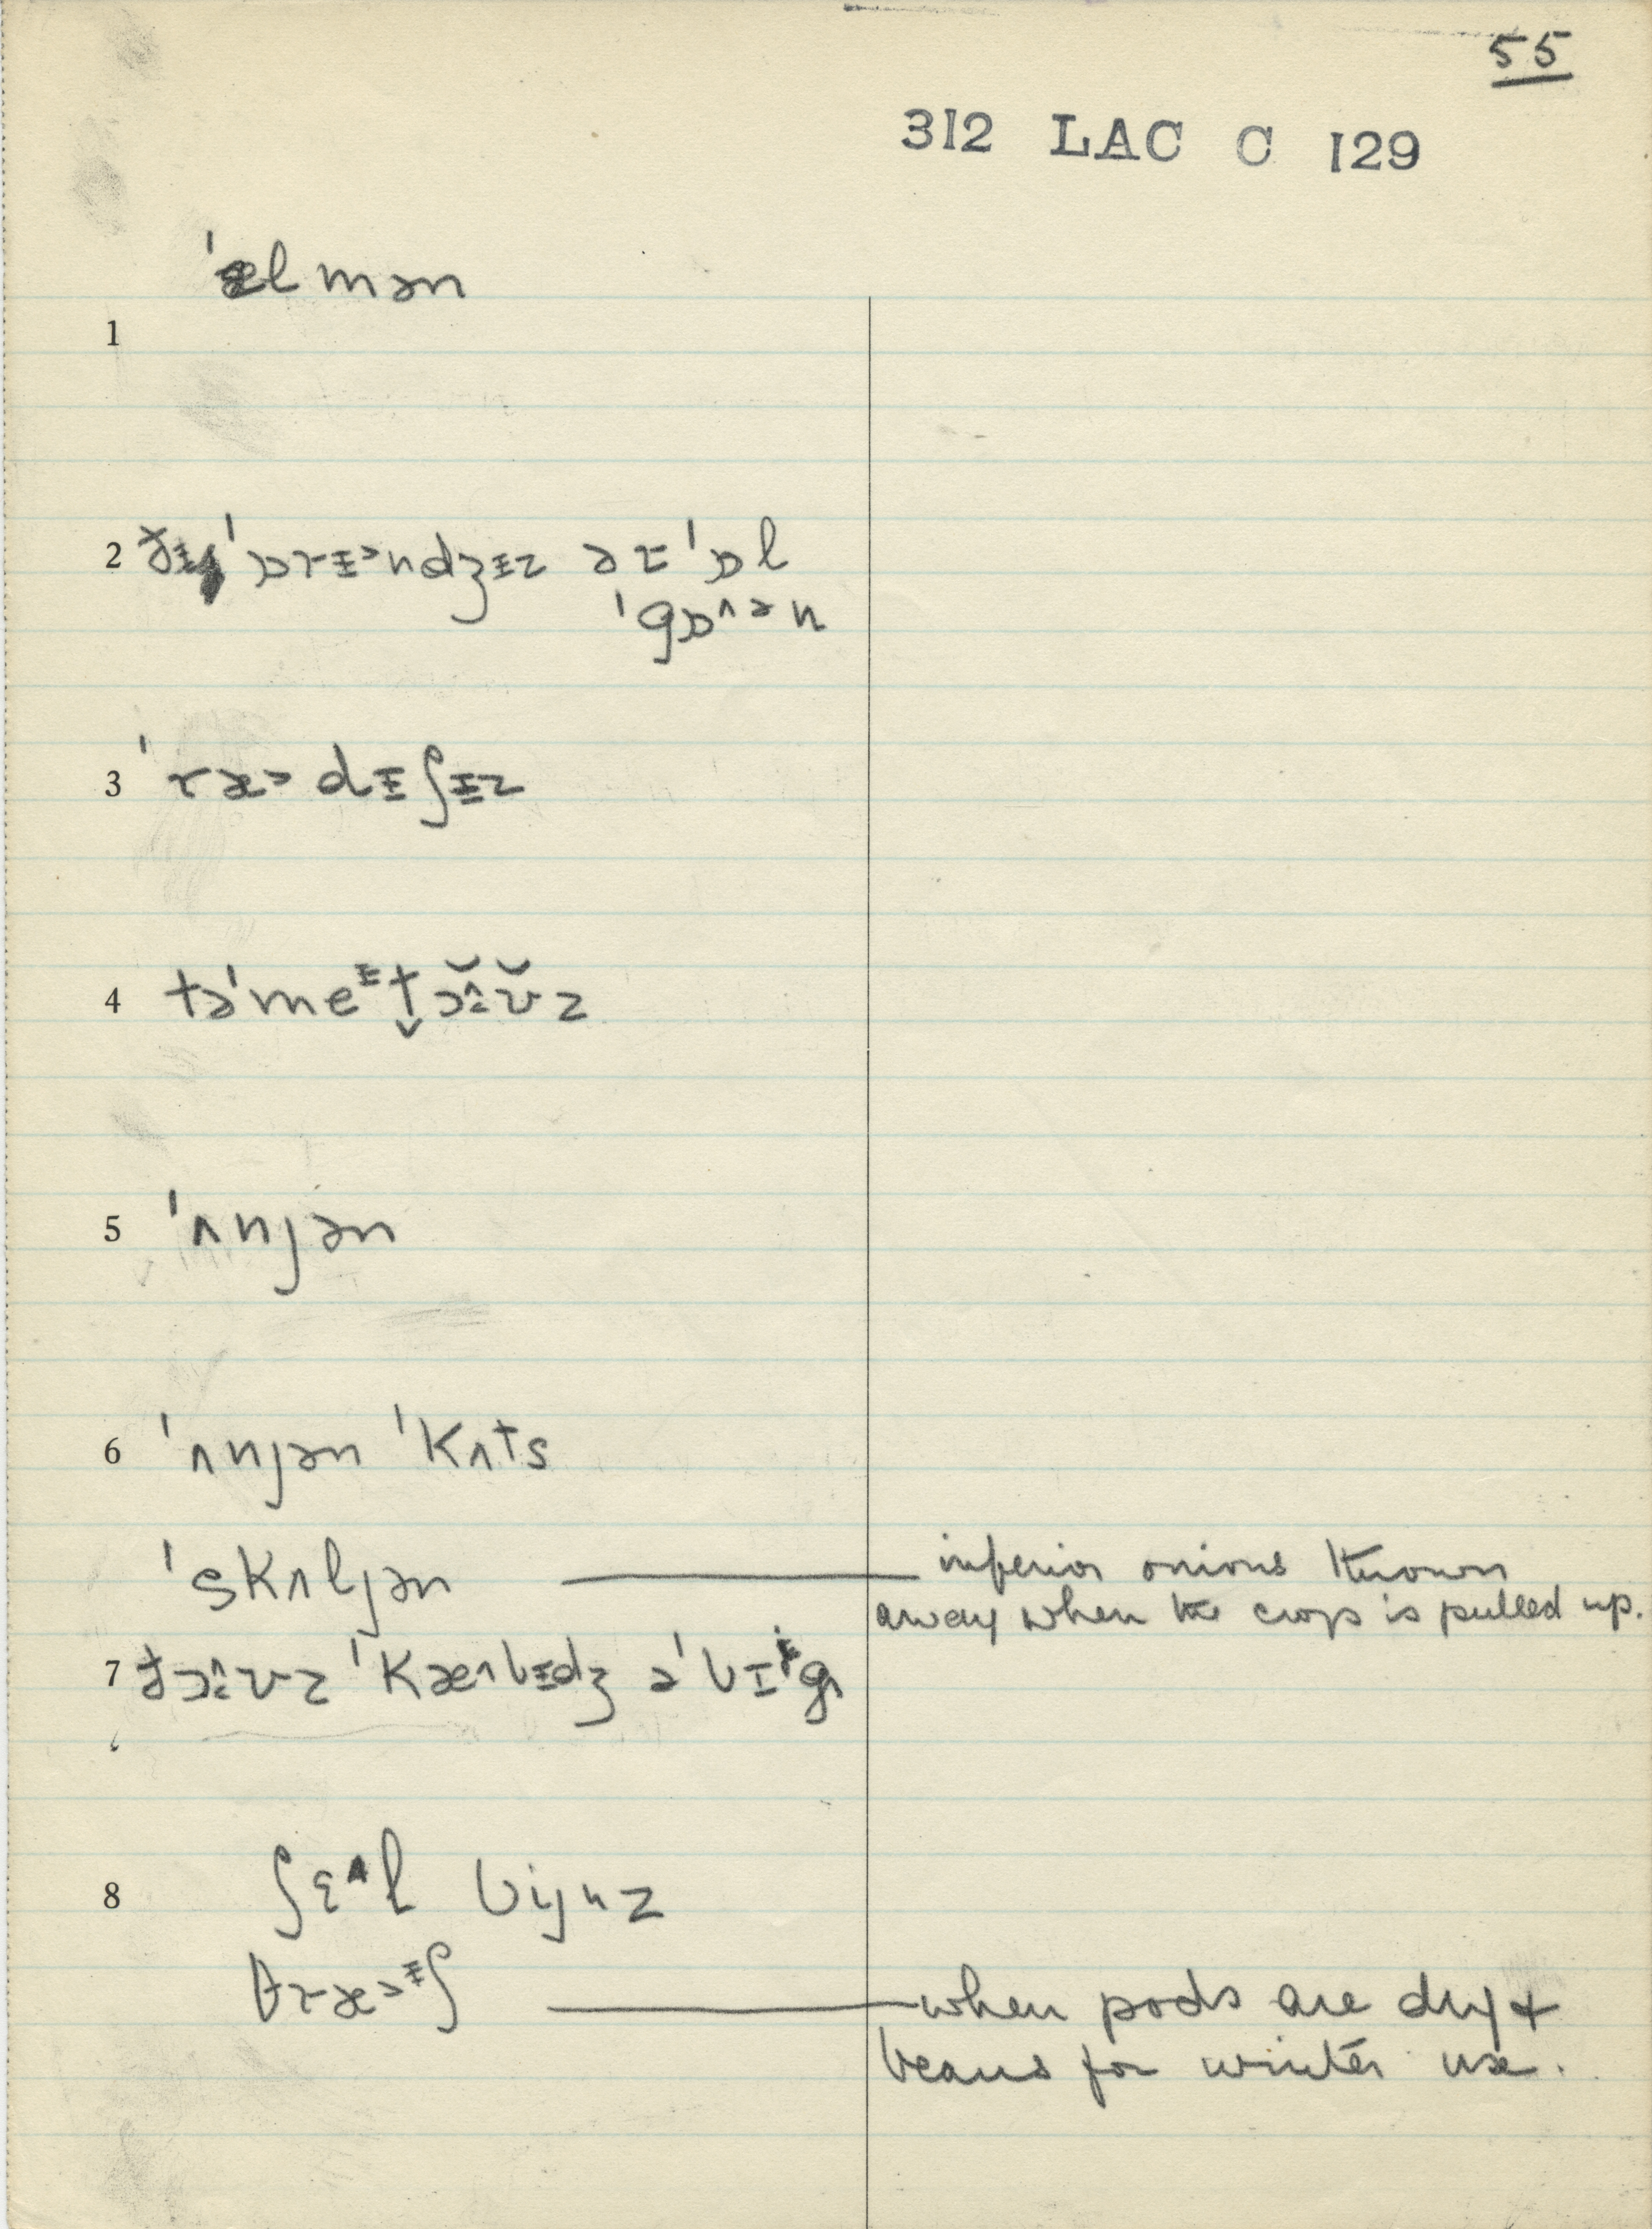 55
312 LAC C 129
ˈælmən
1
2 ðɨ ˈɒrɨᵊndʒɨz ər ˈɒl
ˈgɒ^ᵊn
3 ˈræ˃dɨʃɨz
4 təˈmeᵻt̬ɔ̆̂ʊ̆z
5 ˈʌnjən
6 ˈʌnjən ˈkʌts
ˈskʌljən — inferior onions thrown
away when the crop is pulled up.
7 ðɔ̂ʊz ˈkæ^bɨdʒ əˈbɪg
8 ʃɛ^l bijnz
θræ˃ᵻʃ — when pods are dry +
beans for winter use.